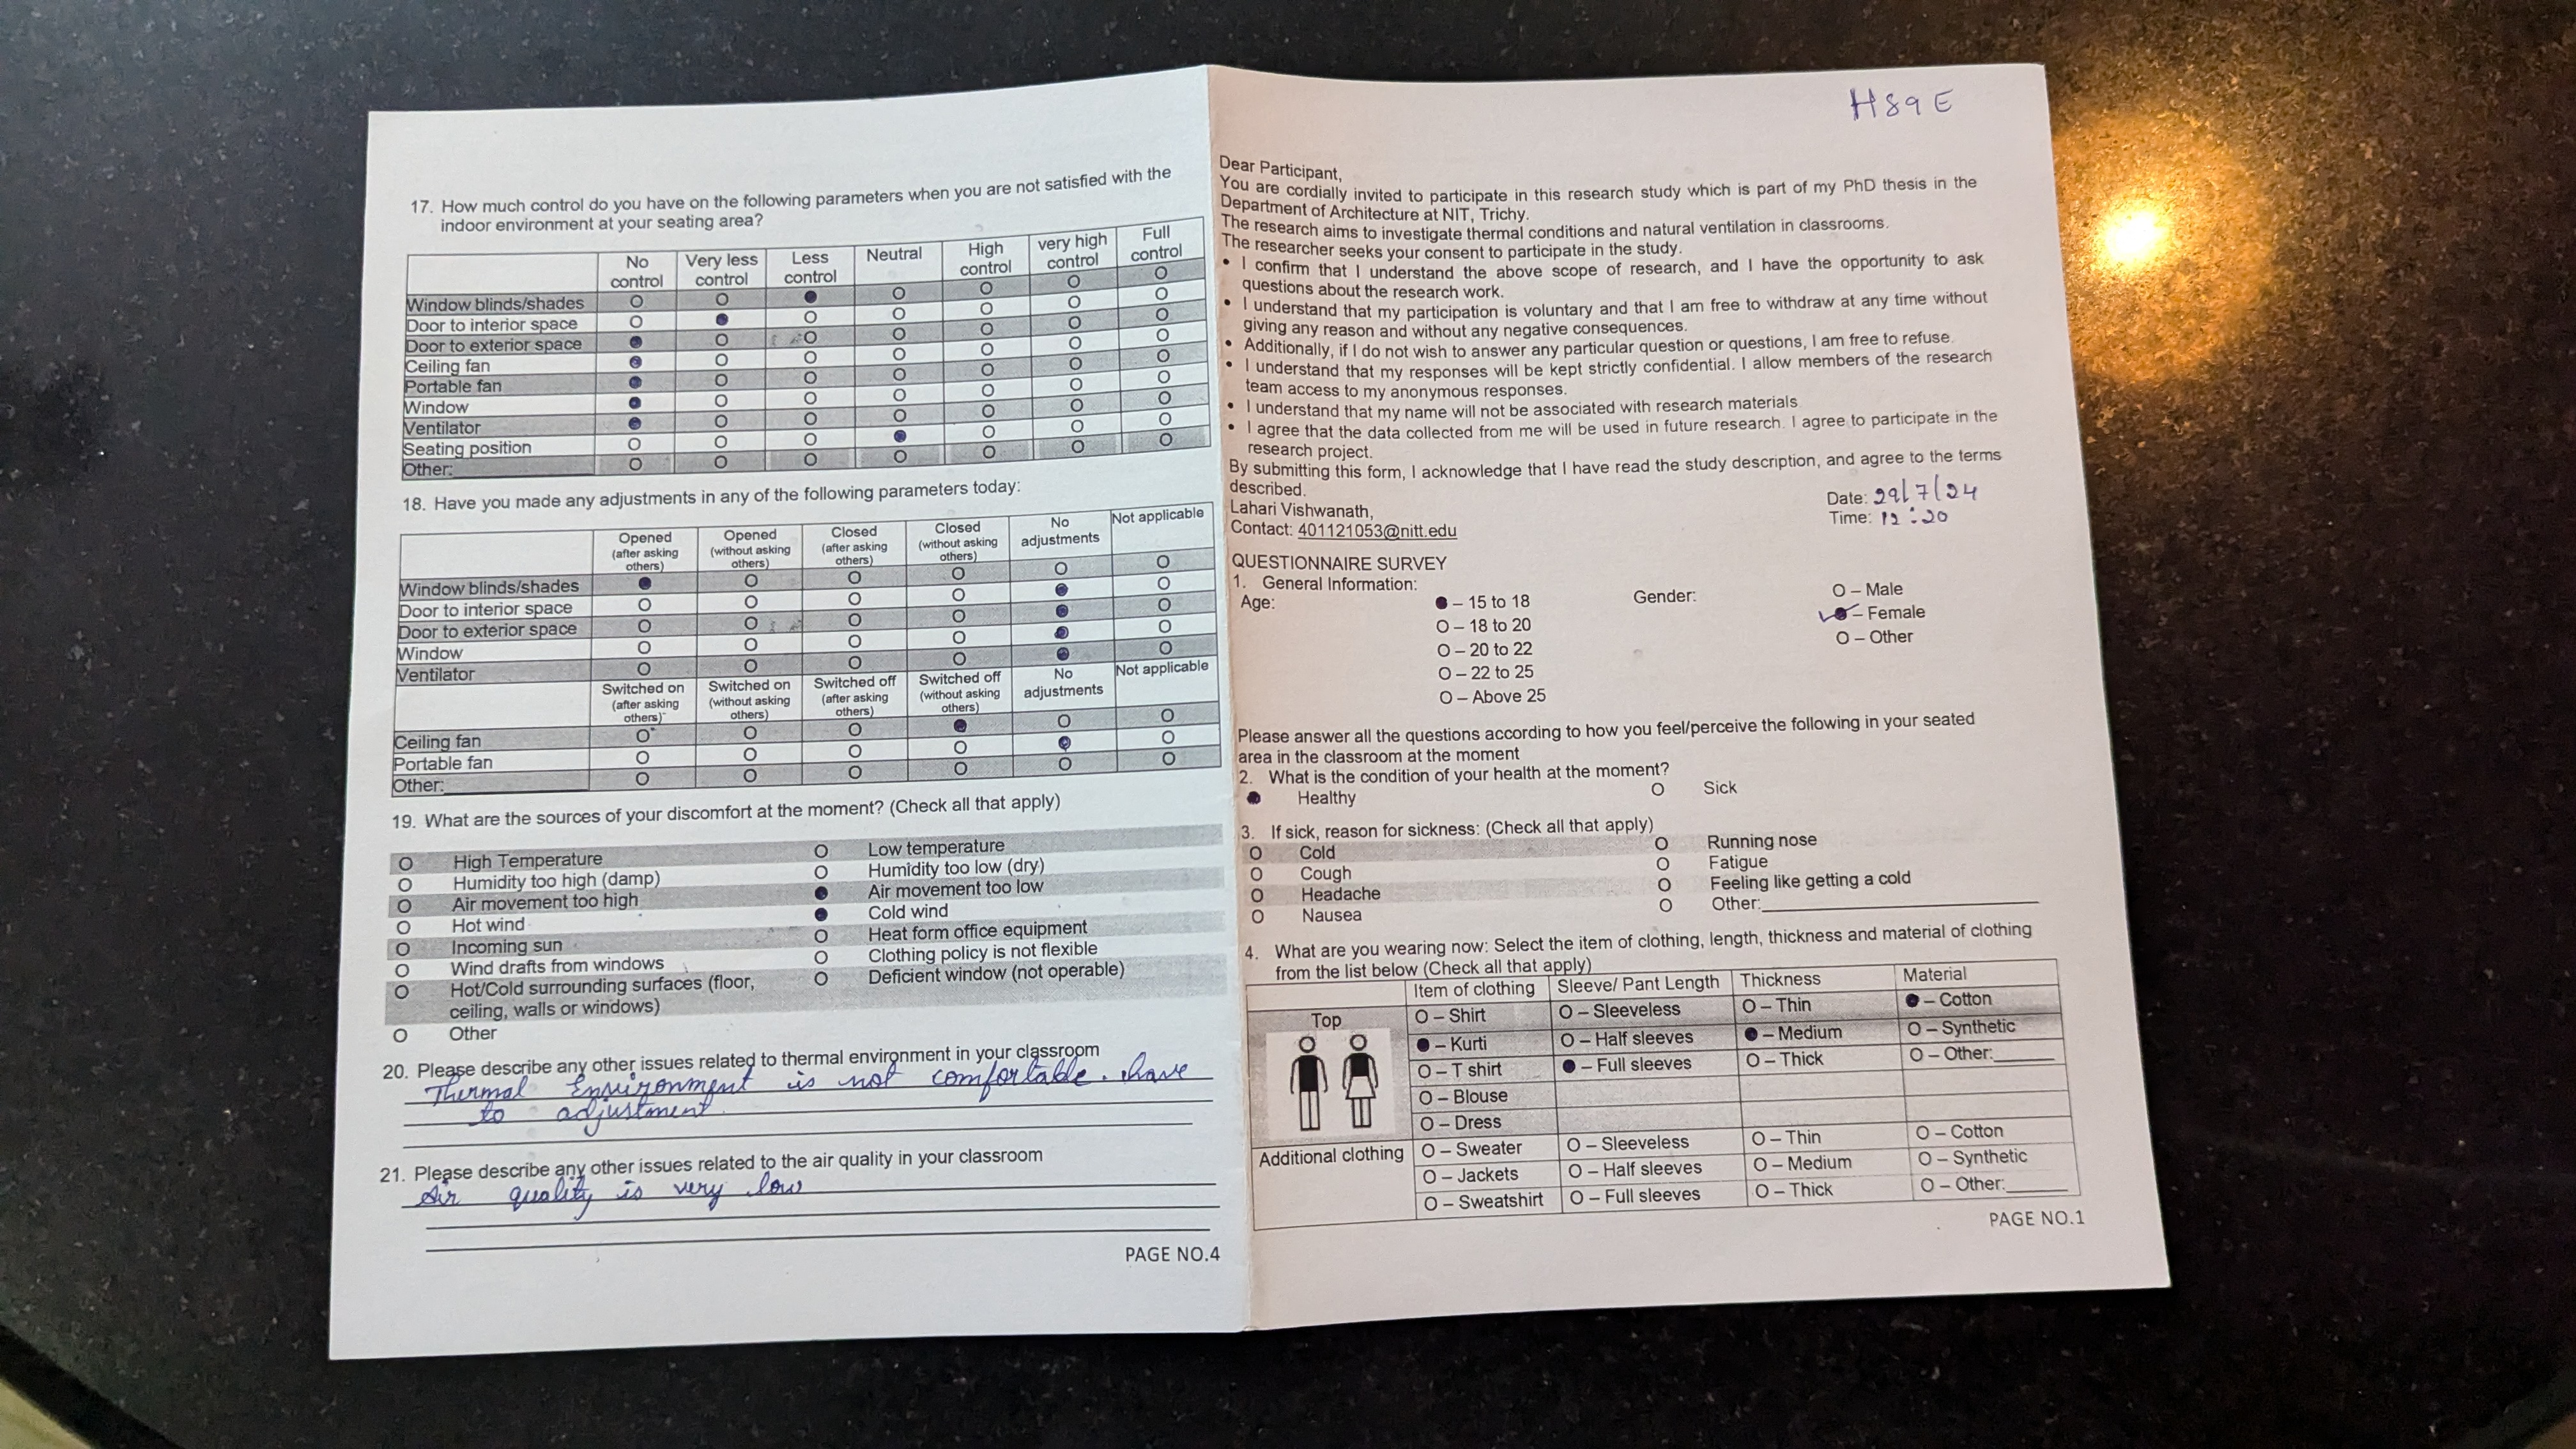 17. How much control do you have on the following parameters when you are not satisfied with the
indoor environment at your seating area?
No control Very less control Less control Neutral High control very high control Full control
Window blinds/shades O O ● O O O O
Door to interior space O ● O O O O O
Door to exterior space ● O O O O O O
Ceiling fan ● O O O O O O
Portable fan ● O O O O O O
Window ● O O O O O O
Ventilator ● O O O O O O
Seating position O O O ● O O O
Other: O O O O O O O
18. Have you made any adjustments in any of the following parameters today:
Opened (after asking others) Opened (without asking others) Closed (after asking others) Closed (without asking others) No adjustments Not applicable
Window blinds/shades ● O O O O O
Door to interior space O O O O ● O
Door to exterior space O O O O ● O
Window O O O O ● O
Ventilator O O O O ● O
Switched on (after asking others) Switched on (without asking others) Switched off (after asking others) Switched off (without asking others) No adjustments Not applicable
Ceiling fan O O O ● O O
Portable fan O O O O ● O
Other: O O O O O O
19. What are the sources of your discomfort at the moment? (Check all that apply)
O High Temperature O Low temperature
O Humidity too high (damp) O Humidity too low (dry)
O Air movement too high ● Air movement too low
O Hot wind ● Cold wind
O Incoming sun O Heat form office equipment
O Wind drafts from windows O Clothing policy is not flexible
O Hot/Cold surrounding surfaces (floor, O Deficient window (not operable)
ceiling, walls or windows)
O Other
20. Please describe any other issues related to thermal environment in your classroom
Thermal Environment is not comfortable. have
to adjustment
21. Please describe any other issues related to the air quality in your classroom
Air quality is very low
PAGE NO.4
H89E
Dear Participant,
You are cordially invited to participate in this research study which is part of my PhD thesis in the
Department of Architecture at NIT, Trichy.
The research aims to investigate thermal conditions and natural ventilation in classrooms.
The researcher seeks your consent to participate in the study.
• I confirm that I understand the above scope of research, and I have the opportunity to ask
questions about the research work.
• I understand that my participation is voluntary and that I am free to withdraw at any time without
giving any reason and without any negative consequences.
• Additionally, if I do not wish to answer any particular question or questions, I am free to refuse.
• I understand that my responses will be kept strictly confidential. I allow members of the research
team access to my anonymous responses.
• I understand that my name will not be associated with research materials
• I agree that the data collected from me will be used in future research. I agree to participate in the
research project.
By submitting this form, I acknowledge that I have read the study description, and agree to the terms
described.
Lahari Vishwanath,
Contact: 401121053@nitt.edu
Date: 29/7/24
Time: 12:20
QUESTIONNAIRE SURVEY
1. General Information:
Age: ● – 15 to 18 Gender: O – Male
O – 18 to 20 ● – Female
O – 20 to 22 O – Other
O – 22 to 25
O – Above 25
Please answer all the questions according to how you feel/perceive the following in your seated
area in the classroom at the moment
2. What is the condition of your health at the moment?
● Healthy O Sick
3. If sick, reason for sickness: (Check all that apply)
O Cold O Running nose
O Cough O Fatigue
O Headache O Feeling like getting a cold
O Nausea O Other:
4. What are you wearing now: Select the item of clothing, length, thickness and material of clothing
from the list below (Check all that apply)
Item of clothing Sleeve/ Pant Length Thickness Material
Top O – Shirt O – Sleeveless O – Thin ● – Cotton
● – Kurti O – Half sleeves ● – Medium O – Synthetic
O – T shirt ● – Full sleeves O – Thick O – Other:
O – Blouse
O – Dress
Additional clothing O – Sweater O – Sleeveless O – Thin O – Cotton
O – Jackets O – Half sleeves O – Medium O – Synthetic
O – Sweatshirt O – Full sleeves O – Thick O – Other:
PAGE NO.1